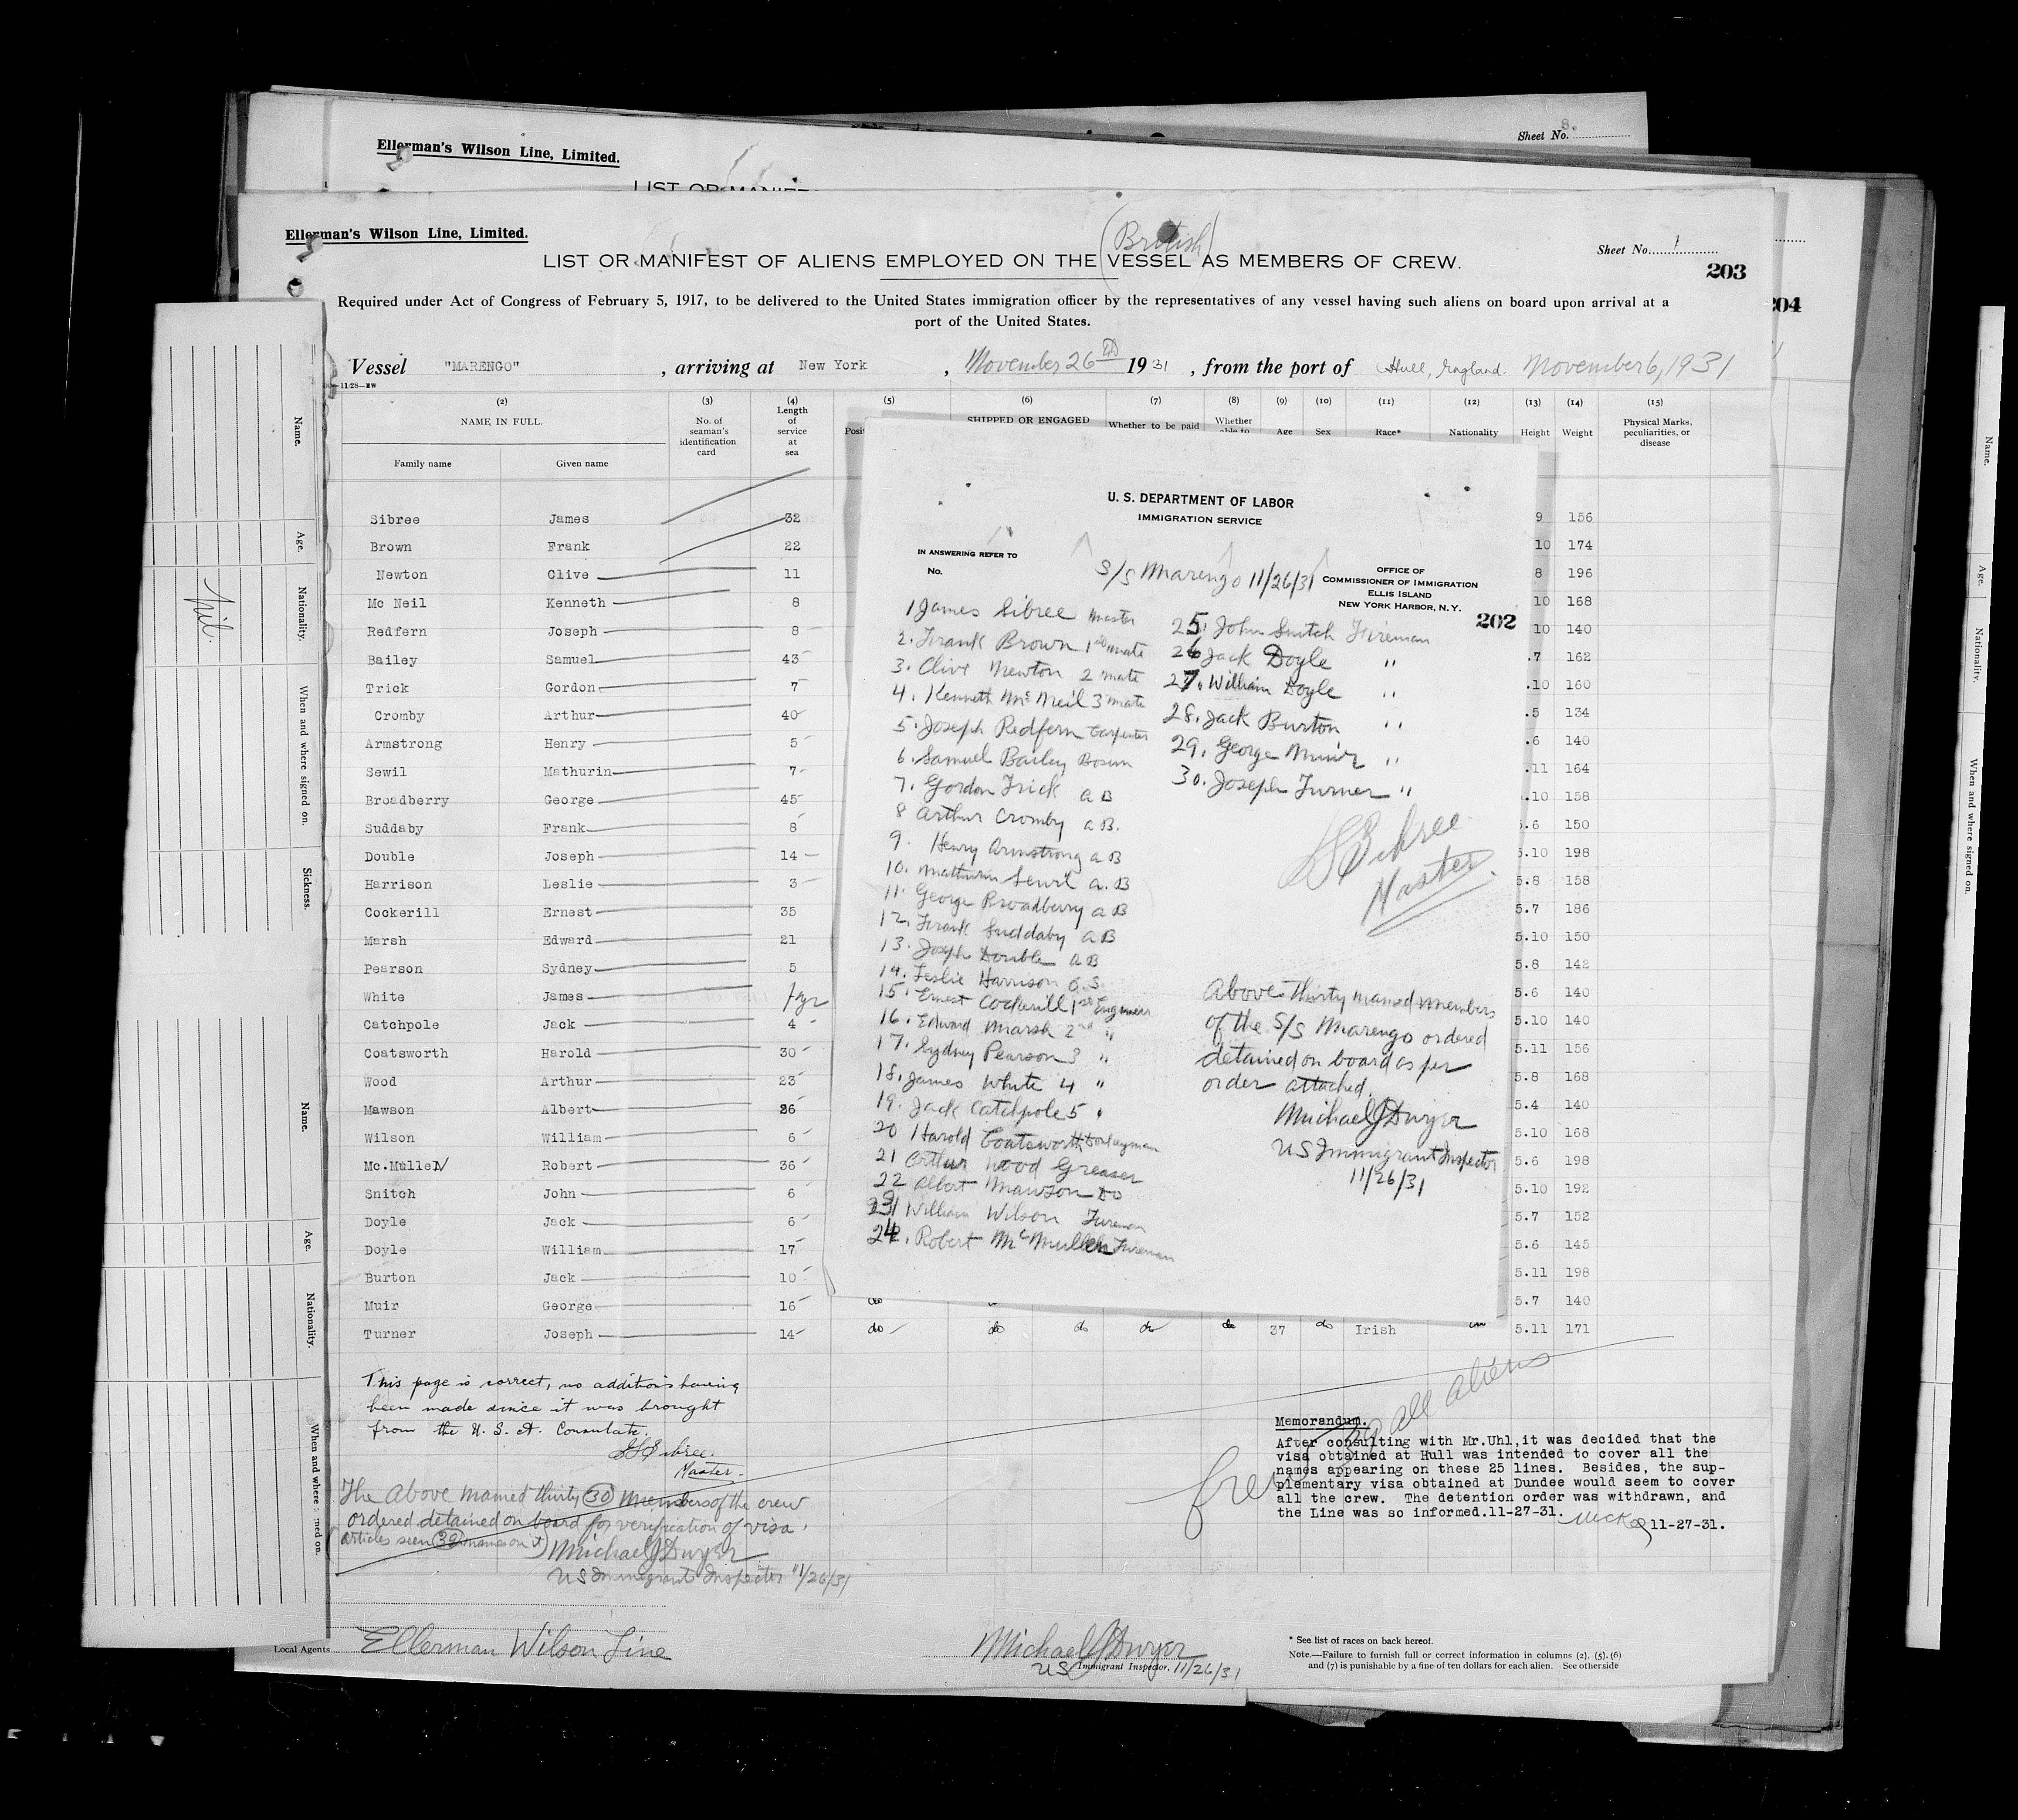 Ellerman's Wilson Line, Limited.
Sheet No. 8.
LIST OR MANIFE
Ellerman's Wilson Line, Limited.
(British)
Sheet No. 1
LIST OR MANIFEST OF ALIENS EMPLOYED ON THE VESSEL AS MEMBERS OF CREW.
203
204
Required under Act of Congress of February 5, 1917, to be delivered to the United States immigration officer by the representatives of any vessel having such aliens on board upon arrival at a
port of the United States.
Vessel "MARENGO", arriving at New York, November 26th 1931, from the port of Hull, England. November 6, 1931
11/28
(2) (3) (4) (5) (6) (7) (8) (9) (10) (11) (12) (13) (14) (15)
NAME IN FULL. No. of seaman's identification card Length of service at sea Posit SHIPPED OR ENGAGED Whether to be paid Whether able to Age Sex Race* Nationality Height Weight Physical Marks, peculiarities, or disease
Family name Given name
Sibree James 32 9 156
Brown Frank 22 10 174
Newton Clive 11 8 196
Mc Neil Kenneth 8 10 168
Redfern Joseph 8 10 140
Bailey Samuel 43 .7 162
Trick Gordon 7 .10 160
Cromby Arthur 40 .5 134
Armstrong Henry 5 .6 140
Sewil Mathurin 7 .11 164
Broadberry George 45 .10 158
Suddaby Frank 8 5.6 150
Double Joseph 14 5.10 198
Harrison Leslie 3 5.8 158
Cockerill Ernest 35 5.7 186
Marsh Edward 21 5.10 150
Pearson Sydney 5 5.8 142
White James 1 yr 5.6 140
Catchpole Jack 4 5.10 140
Coatsworth Harold 30 5.11 156
Wood Arthur 23 5.8 168
Mawson Albert 26 5.4 140
Wilson William 6 5.10 168
Mc.Mullen Robert 36 5.6 198
Snitch John 6 5.10 192
Doyle Jack 6 5.7 152
Doyle William 17 5.6 145
Burton Jack 10 5.11 198
Muir George 16 5.7 140
Turner Joseph 14 do do do do do 37 do Irish 5.11 171
U. S. DEPARTMENT OF LABOR
IMMIGRATION SERVICE
IN ANSWERING REFER TO
No.
S/S Marengo 11/26/31
OFFICE OF
COMMISSIONER OF IMMIGRATION
ELLIS ISLAND
NEW YORK HARBOR, N.Y.
202
1 James Sibree Master
2. Frank Brown 1st mate
3. Clive Newton 2 mate
4. Kenneth McNeil 3 mate
5. Joseph Redfern Carpenter
6. Samuel Bailey Bosun
7. Gordon Trick AB
8 Arthur Cromby a B.
9. Henry Armstrong a B
10. Mathurin Sewil a. B
11. George Broadberry a B
12. Frank Suddaby a B
13. Joseph Double a B
14. Leslie Harrison O.S.
15. Ernest Cockerill 1st Engineer
16. Edward Marsh 2nd "
17. Sydney Pearson 3 "
18. James White 4 "
19. Jack Catchpole 5 "
20 Harold Coatsworth Donkeyman
21 Arthur Wood Greaser
22 Albert Mawson Do
23 William Wilson Fireman
24. Robert McMullen Fireman
25. John Snitch Fireman
26 Jack Doyle "
27. William Doyle "
28. Jack Burton "
29. George Muir "
30. Joseph Turner "
Sibree
Master.
Above thirty named members
of the S/S Marengo ordered
detained on board as per
order attached.
Michael J Dwyer
US Immigrant Inspector
11/26/31
This page is correct, no additions having
been made since it was brought
from the U. S. A. Consulate.
Sibree.
Master.
The above named thirty (30) members of the crew
ordered detained on board for verification of visa.
(articles seen (32) names on it)
Michael J Dwyer
US Immigrant Inspector 11/26/31
all aliens
Memorandum.
After consulting with Mr.Uhl,it was decided that the
visa obtained at Hull was intended to cover all the
names appearing on these 25 lines. Besides, the sup-
plementary visa obtained at Dundee would seem to cover
all the crew. The detention order was withdrawn, and
the Line was so informed.11-27-31.
11-27-31.
Local Agents Ellerman Wilson Line
Michael J Dwyer
US Immigrant Inspector. 11/26/31
* See list of races on back hereof.
Note.—Failure to furnish full or correct information in columns (2). (5). (6)
and (7) is punishable by a fine of ten dollars for each alien. See other side
Name.
Age.
Nationality.
Nil.
When and where signed on.
Sickness.
Name.
Age.
Nationality.
When and where signed on.
Name.
Age.
Nationality.
When and where signed on.